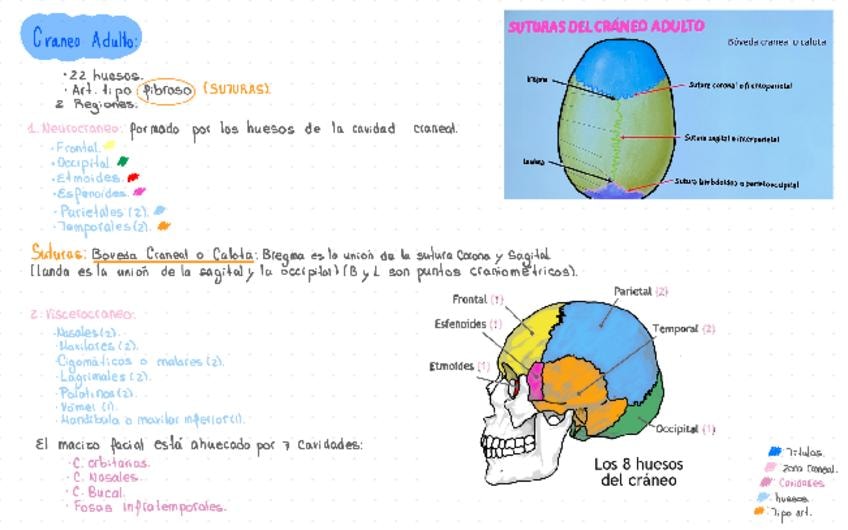 Craneo Adulto:
· 22 huesos.
· Art. tipo fibroso (SUTURAS)
2 Regiones.
1. Neurocraneo: formado por los huesos de la cavidad craneal.
· Frontal.
· Occipital.
· Etmoides.
· Esfenoides.
· Parietales (2).
· Temporales (2).
SUTURAS DEL CRÁNEO ADULTO
Bóveda craneal o calota
Bregma
Sutura coronal o frontoparietal
Sutura sagital o interparietal
Lambda
Sutura lambdoidea o parietooccipital
Suturas: Boveda Craneal o Calota: Bregma es la unión de la sutura Corona y Sagital
(landa es la unión de la sagital y la occipital) (B y L son puntos craniométricos).
2. Viscerocraneo:
· Nasales (2).
· Maxilares (2).
· Cigomáticos o malares (2).
· Lagrimales (2).
· Palatinos (2).
· Vómer (1).
· Mandíbula o maxilar inferior (1).
El macizo facial está ahuecado por 7 cavidades:
· C. orbitarias.
· C. Nasales.
· C. Bucal.
· Fosas infratemporales.
Frontal (1)
Parietal (2)
Esfenoides (1)
Temporal (2)
Etmoides (1)
Occipital (1)
Los 8 huesos
del cráneo
Titulos.
Zona Craneal.
Cavidades.
huesos.
Tipo art.